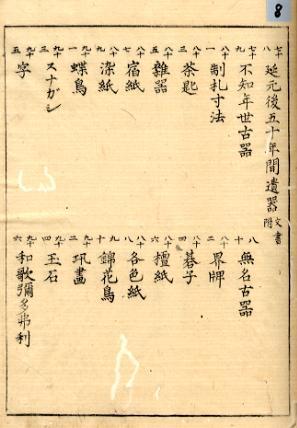 8
七十八 延元後五十年間遺器 文書附
七十九 不知年世古器 八十 無名古器
八十一 制札寸法 八十二 界牌
八十三 茶匙 八十四 碁子
八十五 雜器 八十六 檀紙
八十七 宿紙 八十八 各色紙
八十九 染紙 九十 錦花鳥
九十一 蝶鳥 九十二 畫
九十三 スナガシ 九十四 玉石
九十五 字 九十六 和歌彌多弗利